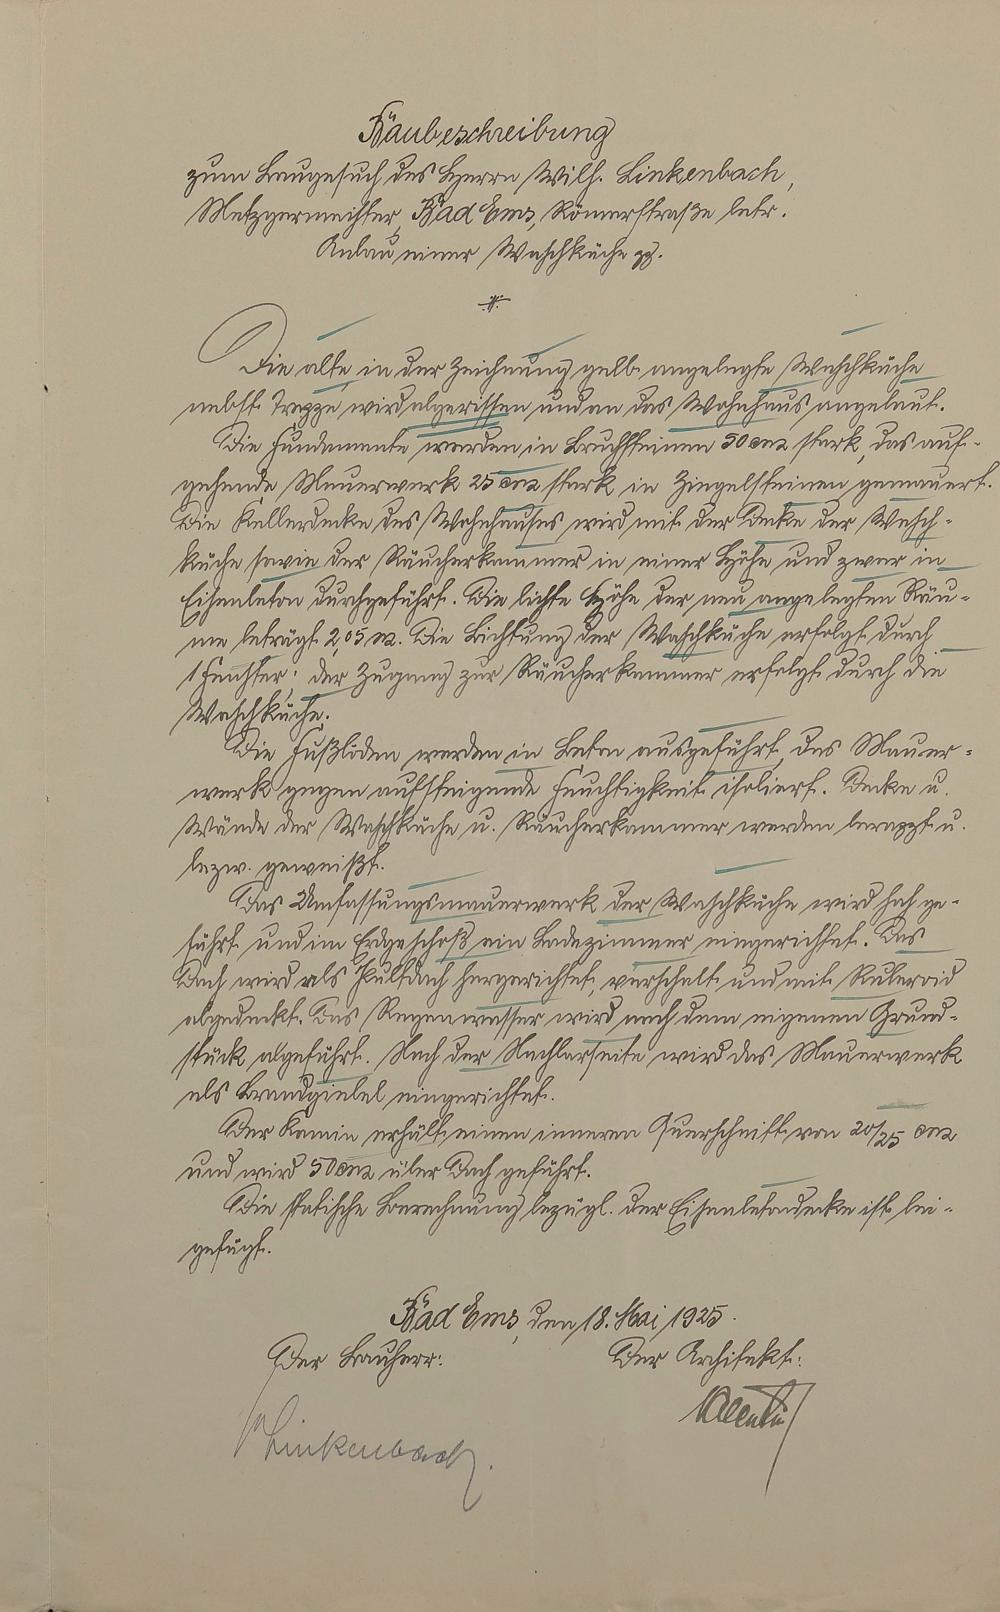 Baubeschreibung
zum Baugesuch des Herrn Wilh. Linkenbach,
Metzgermeister, Bad Ems, Römerstraße betr.
Anbau einer Waschküche pp.
Die alte, in der Zeichnung gelb angelegte Waschküche
nebst Treppe wird abgerissen und an das Wohnhaus angebaut.
Die Fundamente werden in Bruchsteinen 50 cm stark, das auf-
gehende Mauerwerk 25 cm stark in Ziegelsteinen gemauert.
Die Kellerdecke des Wohnhauses wird mit der Decke der Wasch-
küche sowie der Räucherkammer in einer Höhe und zwar in
Eisenbeton durchgeführt. Die lichte Höhe der neu angelegten Räu-
me beträgt 2,05 m. Die Lichtung der Waschküche erfolgt durch
1 Fenster; der Zugang zur Räucherkammer erfolgt durch die
Waschküche.
Die Fußböden werden in Beton ausgeführt, das Mauer-
werk gegen aufsteigende Feuchtigkeit isoliert. Decke u.
Wände der Waschküche u. Räucherkammer werden berappt u.
bezw. geweißt.
Das Umfassungsmauerwerk der Waschküche wird hoch ge-
führt und im Erdgeschoß ein Badezimmer eingerichtet. Das
Dach wird als Pultdach hergerichtet, verschalt und mit Ruberoid
abgedeckt. Das Regenwasser wird nach dem eigenen Grund-
stück abgeführt. Nach der Nachbarseite wird das Mauerwerk
als Brandgiebel eingerichtet.
Der Kamin erhält einen inneren Querschnitt von 20/25 cm
und wird 50 cm über Dach geführt.
Die statische Berechnung bezügl. der Eisenbetondecke ist bei-
gefügt.
Bad Ems, den 18. Mai 1925.
Der Bauherr: Der Architekt:
W Linkenbach.